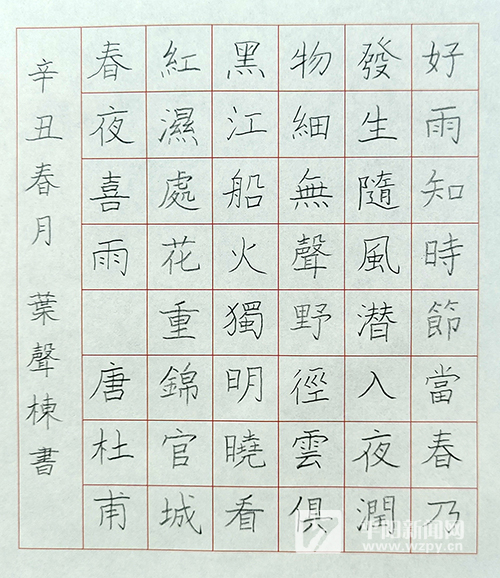 好雨知時節當春乃
發生隨風潛入夜潤
物細無聲野徑雲俱
黑江船火獨明曉看
紅濕處花重錦官城
春夜喜雨 唐杜甫
辛丑春月 葉聲棟書
平阳新闻网
www.wzpy.cn